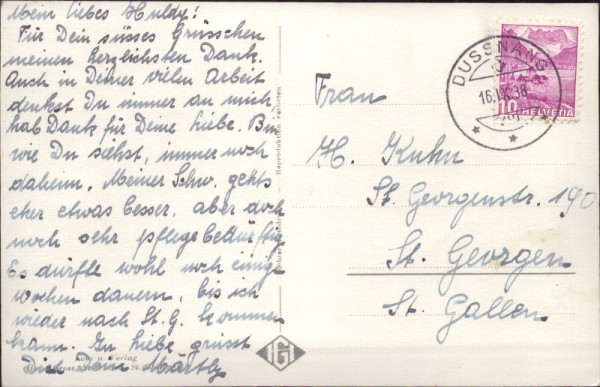 Mein liebes Huldy!
Für Dein süsses Grüsschen
meinen herzlichsten Dank.
Auch in Deiner vielen Arbeit
denkst Du immer an mich
hab Dank für Deine Liebe. Bin
wie Du siehst, immer noch
daheim. Meiner Schw. gehts
eher etwas besser, aber doch
noch sehr pflegebedürftig
Es dürfte wohl noch einige
Wochen dauern, bis ich
wieder nach St. G. kommen
kann. In Liebe grüsst
Dich Dein Märtly
Verlag
DUSSNANG
16.IX.38
10 HELVETIA
Frau
H. Kuhn
St. Georgenstr. 190
St. Georgen
St. Gallen